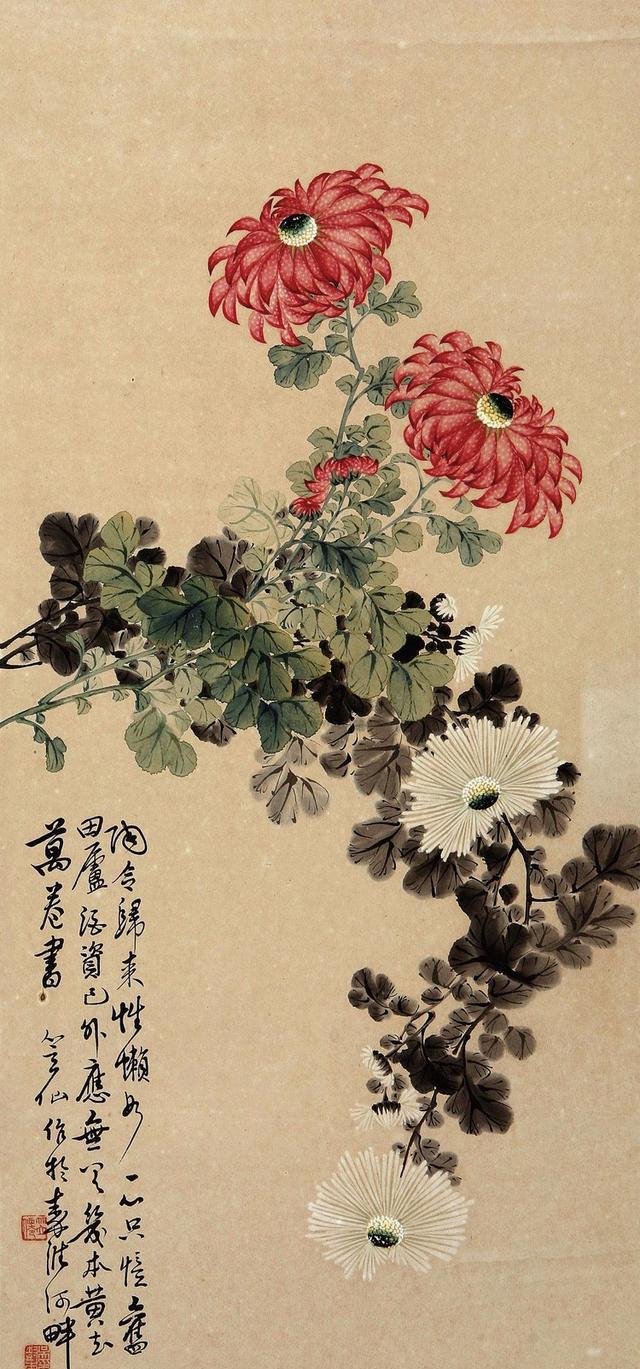 陶令歸來性懶如一心只憶舊
田廬酒資已外應無幾本黃花
萬卷書 仙作於壽河畔